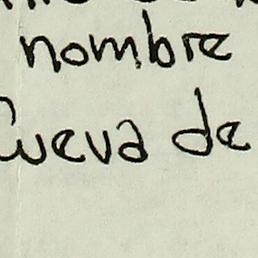 nombre
Cueva de